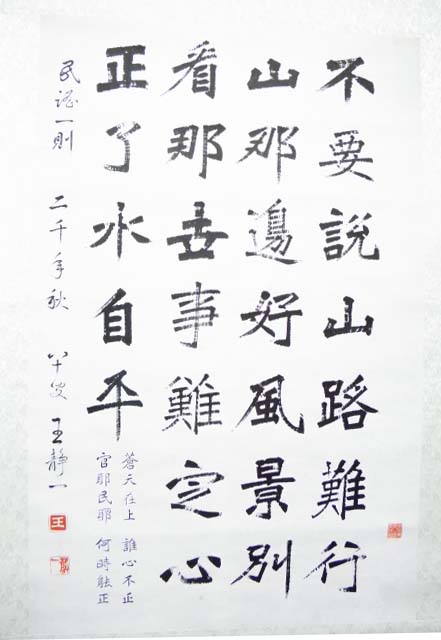 不要說山路難行
山那邊好風景別
看那世事難定心
正了水自平
蒼天在上 誰心不正
官耶民耶 何時能正
民謠一則 二千年秋 八十叟 王靜一
王